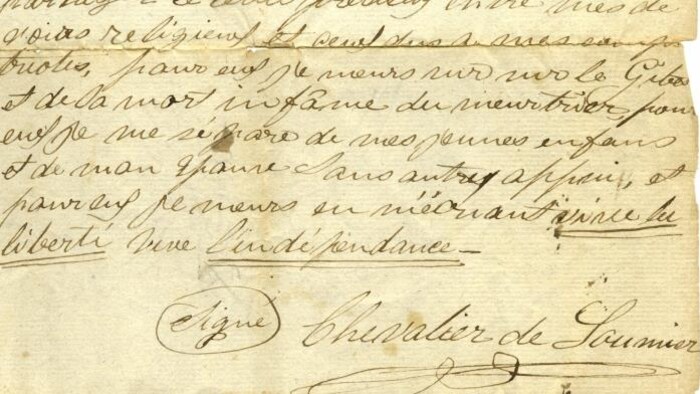 entre mes de
voirs religieux et ceux dus a mes comp
triotes, pour eux je meurs sur le Gibe
et de la mort infâme du meurtrier, pour
eux je me sépare de mes jeunes enfans
et de mon Epouse Sans autres appui, et
pour eux je meurs en m'écriant vive la
liberté vive l'indépendance_
Signé Chevalier de Lorimier